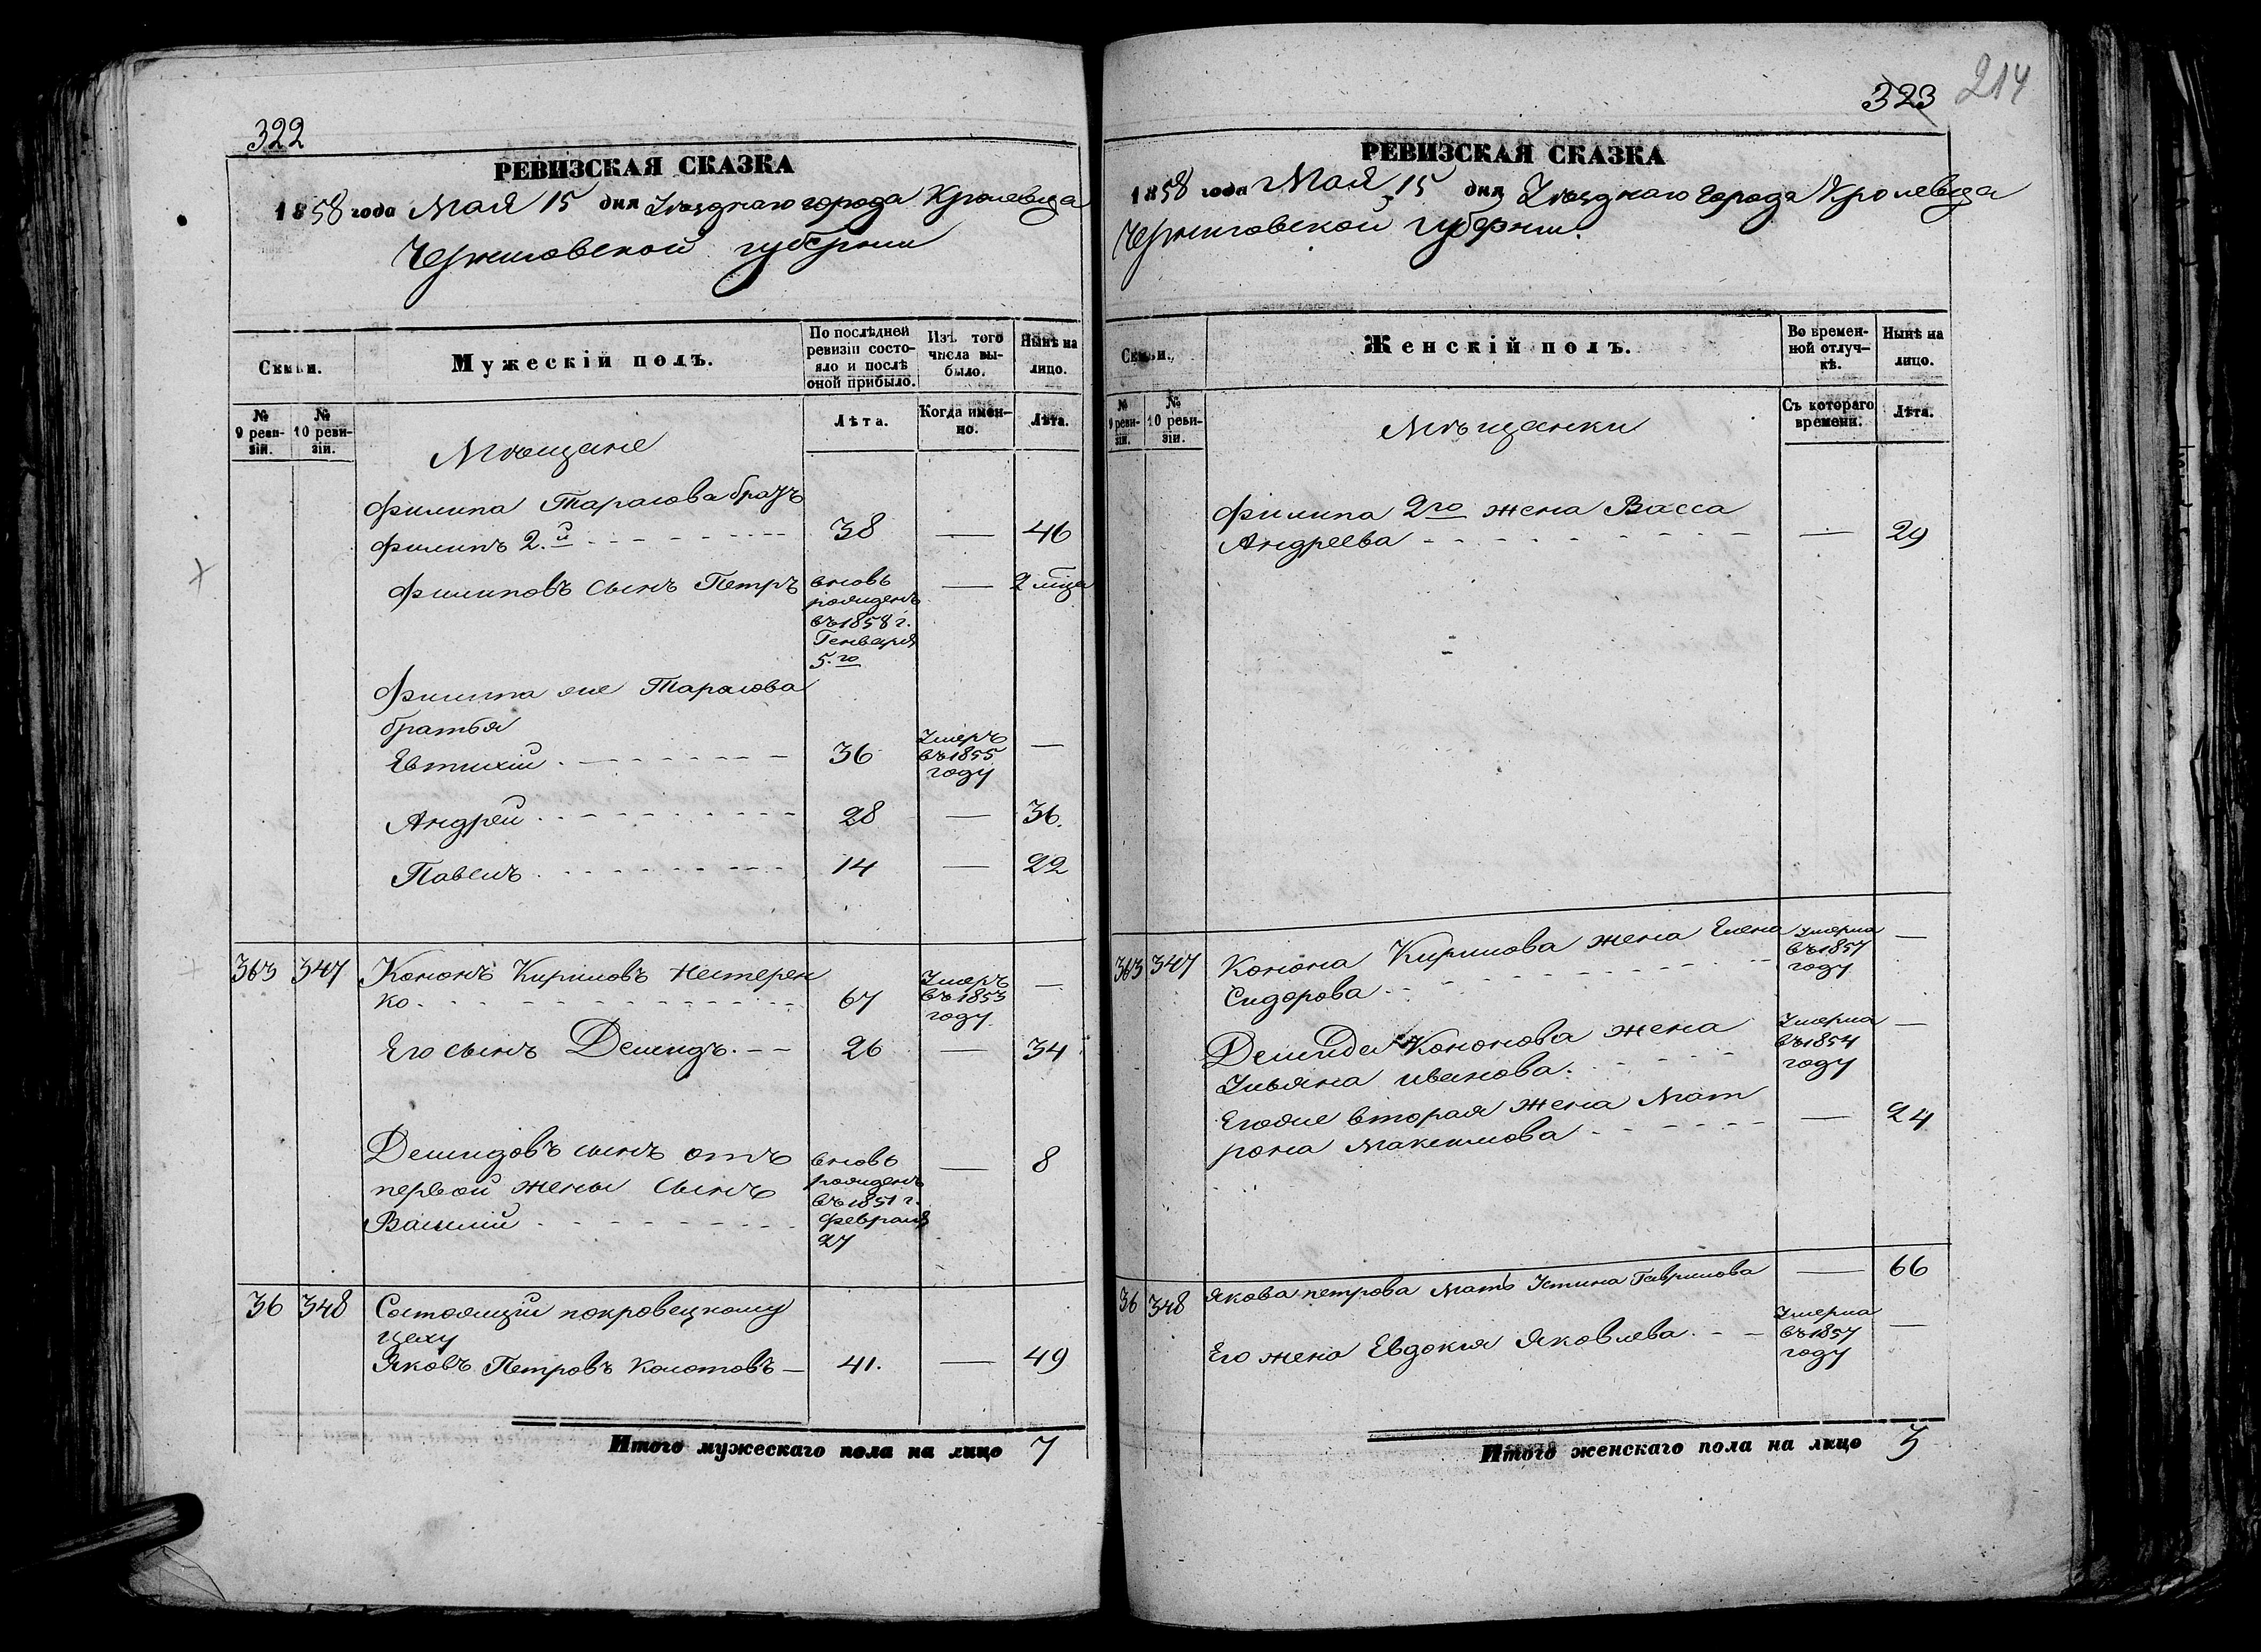 322
РЕВИЗСКАЯ СКАЗКА
1858 года Мая 15 дня Уѣзднаго города Кролевца
Черниговской губерніи
Семьи.
Мужескій полъ.
По послѣдней ревизіи состояло и послѣ оной прибыло.
Изъ того числа выбыло.
Нынѣ на лицо.
№ 9 ревизіи.
№ 10 ревизіи.
Лѣта.
Когда именно.
Лѣта.
Мѣщане
Филипа Тарасова братъ
Филипъ 2.й 38 — 46
Филиповъ сынъ Петръ вновь рожденъ въ 1858 г. Генваря 5.го — 2 мѣца
Филипа же Тарасова
братья
Евтихій 36 Умеръ въ 1855 году —
Андрей 28 — 36.
Павелъ 14 — 22
363 347 Кононъ Кириловъ Нестерен
ко 67 Умеръ въ 1853 году —
Его сынъ Демидъ 26 — 34
Демидовъ сынъ отъ вновь рожденъ въ 1851 г. Февраля 27 — 8
первой жены сынъ
Василій
36 348 Состоящій покровецкому
цеху
Яковъ Петровъ Колотовъ 41. — 49
Итого мужескаго пола на лицо 7
323
214
РЕВИЗСКАЯ СКАЗКА
1858 года Мая 15 дня Уѣзднаго города Кролевца
Черниговской губерніи.
Семьи.
Женскій полъ.
Во временной отлучкѣ.
Нынѣ на лицо.
№ 9 ревизіи.
№ 10 ревизіи.
Съ котораго времени.
Лѣта.
Мѣщанки
Филипа 2го жена Васса
Андреева — 29
363 347 Конона Кирилова жена Елена Умерла въ 1857 году —
Сидорова
Демида Кононова жена Умерла въ 1854 году —
Ульяна иванова.
Егоже вторая жена Мат
рона Максимова — 24
36 348 Якова петрова мать Устина Гаврилова — 66
Его жена Евдокія Яковлева. Умерла въ 1857 году —
Итого женскаго пола на лицо 3